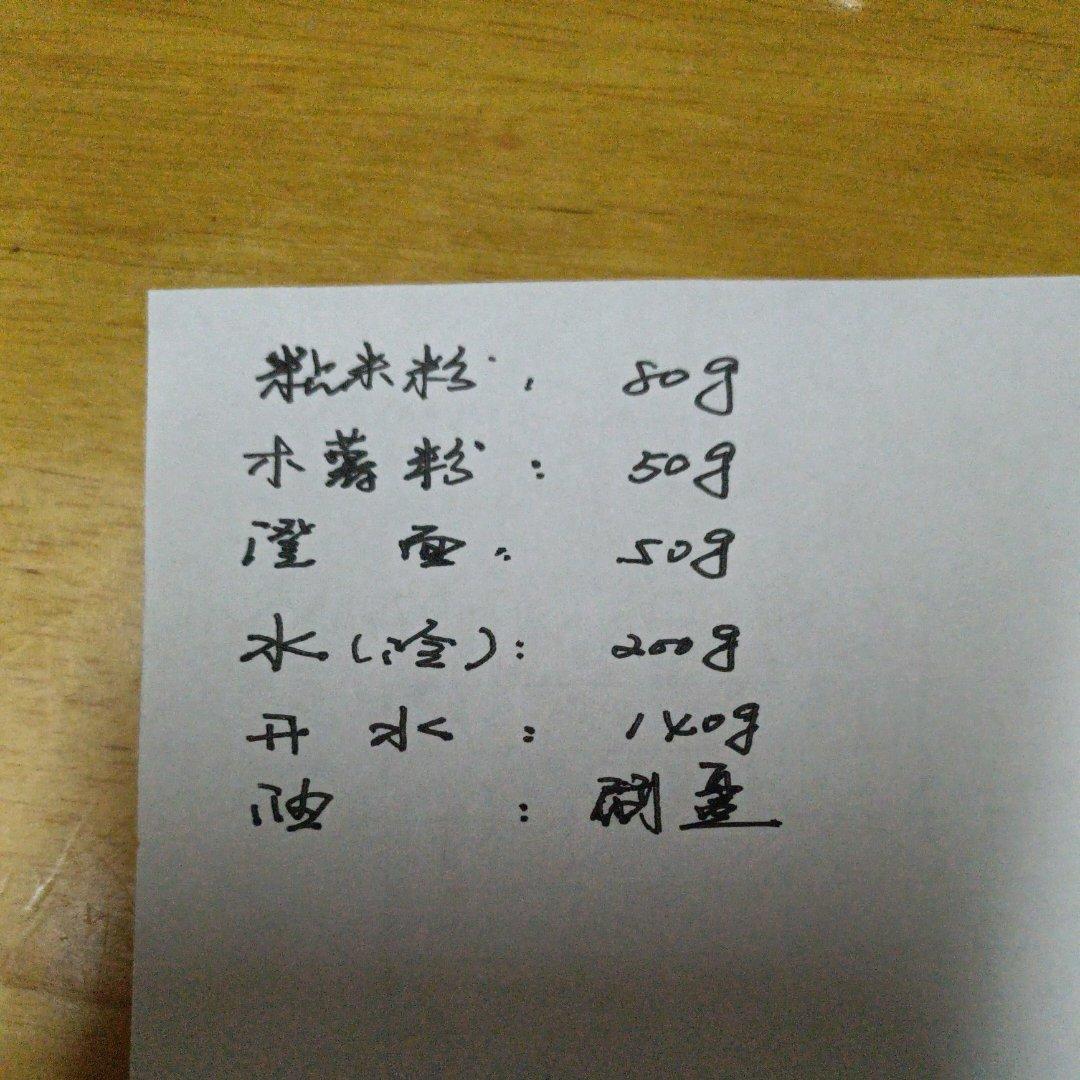 粘米粉: 80g
木薯粉: 50g
澄面: 50g
水(冷): 200g
开水: 140g
油: 刷盘